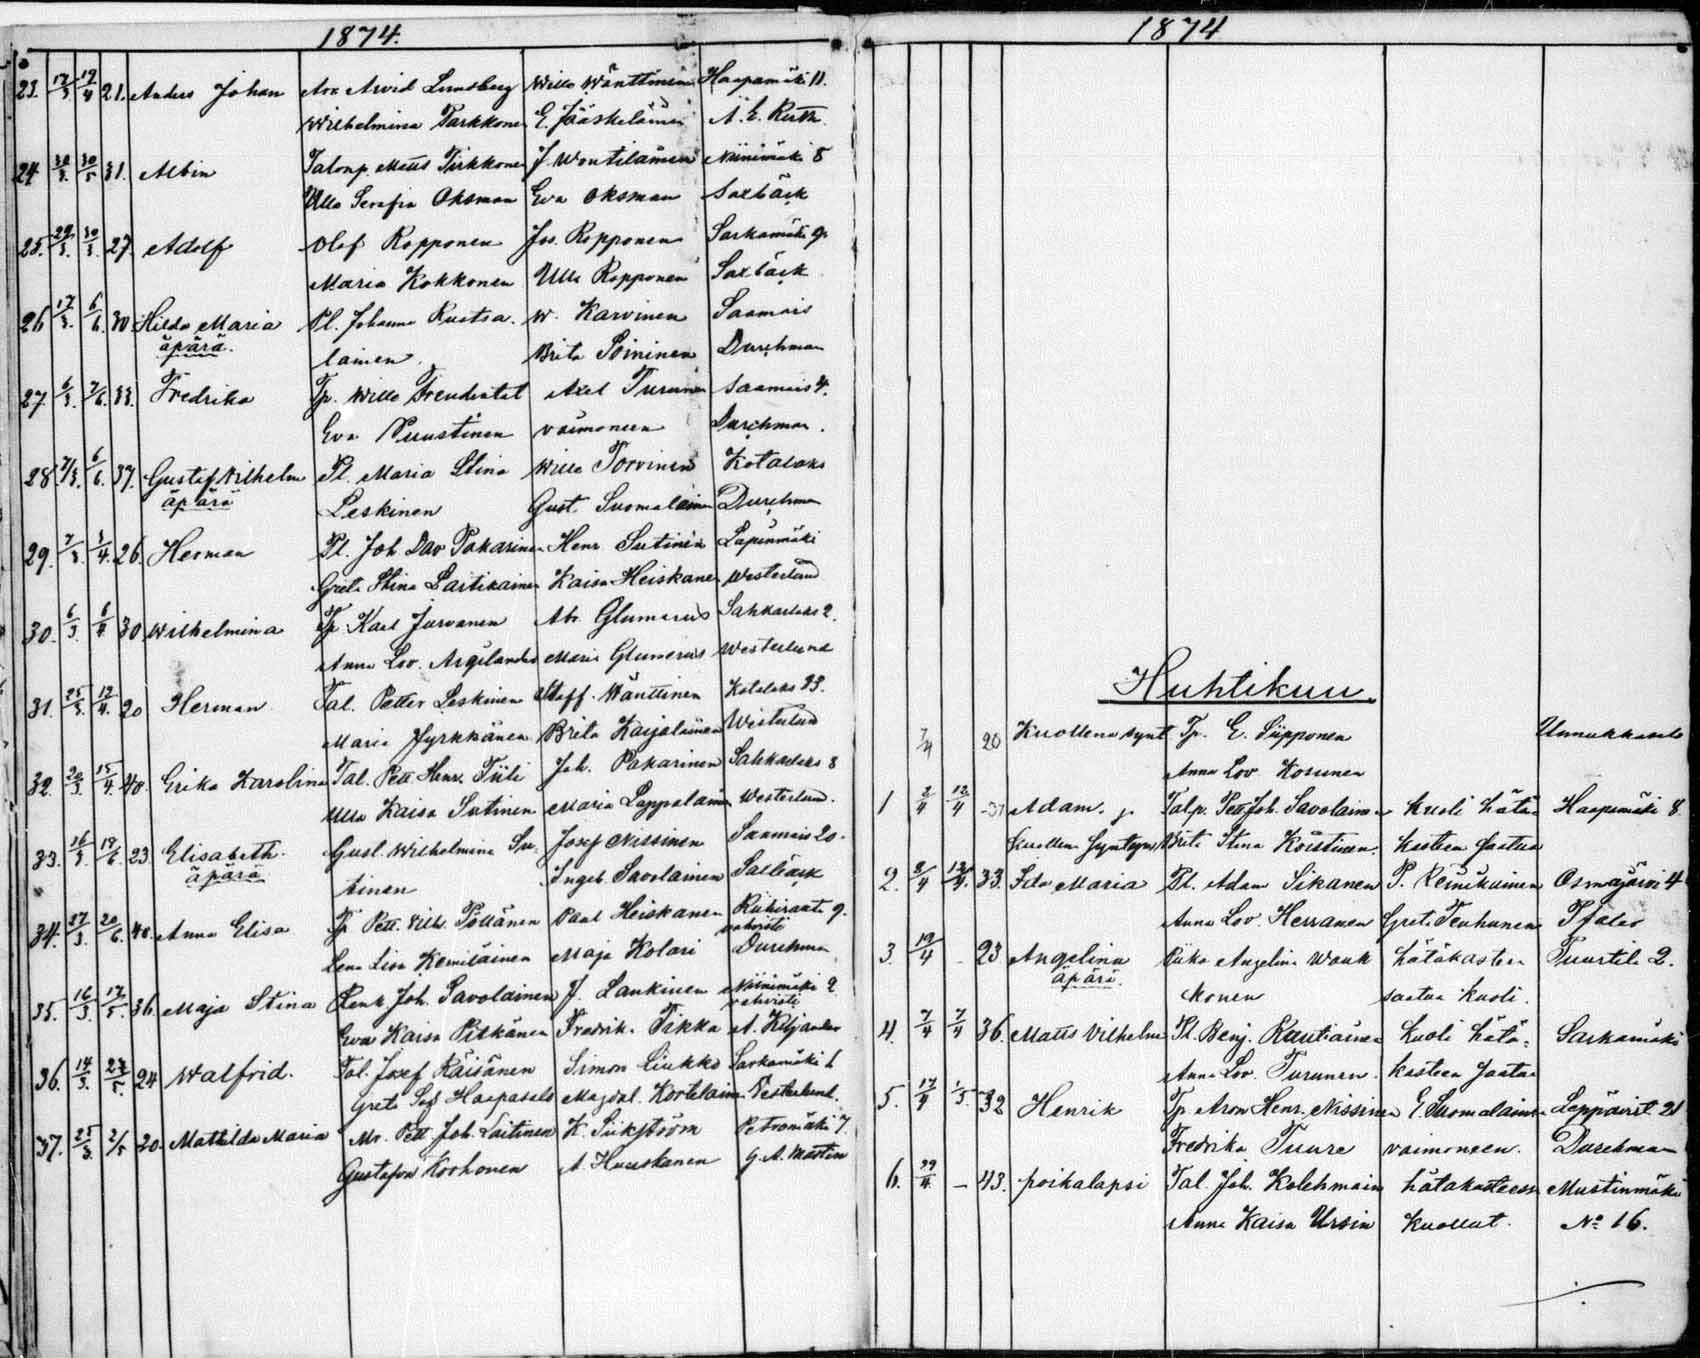 1874.
23. 17/3 17/4 21. Anders Johan Arr Arvid Lundberg Wille Wänttinen Haapamäki 11.
Wilhelmina Parkkonen E. Jääskeläinen A. E. Ruth
24 30/3. 30/5 31. Albin Talonp. Matts Tirkkonen J. Woutilainen Niinimäki 8
Ulla Serafia Oksman Eva Oksman Saxbäck
25. 29/3. 30/3. 27. Adolf Olof Ropponen Jos. Ropponen Sarkamäki 9.
Maria Kokkonen Ulla Ropponen Saxbäck
26 17/3. 6/6. 30. Hilda Maria Pl. Johanna Ruotsa. W. Karvinen Saamais
äpärä. lainen. Brita Soininen Durchman
27. 6/3. 7/6. 33. Fredrika Tp. Wille Freudintal Axel Turunen Saamais 4.
Eva Puustinen vaimoneen Durchman.
28. 7/3. 6/6. 37. Gustaf Wilhelm Pl. Maria Stina Wille Torvinen Kotalaks
äpärä Leskinen Gust. Suomalainen Durchman
29. 7/3. 3/4. 26. Herman Pl. Joh Dav Pakarinen Henr. Sutinen Lapinmäki
Greta Stina Laitikainen Kaisa Heiskanen Westerlund
30. 6/3. 6/4 30. Wilhelmina Tp Karl Jurvanen Abr. Glumerus Sahkarlaks 2.
Anna Lov. Argilander Maria Glumerus Westerlund
31. 25/3. 12/4. 20 Herman Tal. Petter Leskinen Staff. Wänttinen Kotalaks 23.
Maria Jyrkkänen Brita Karjalainen Westerlund
32. 20/3. 15/4. 40. Erika Karolina Tal. Pett Henr. Tiili Joh. Pakarinen Sahkarlaks 8
Ulla Kaisa Sutinen Maria Lappalainen Westerlund.
33. 16/3. 19/6. 23. Elisabeth. Gust. Wilhelmina Su- Josef Nissinen Saamais 20.
äpärä tinen Ingeb. Savolainen Saxbäck
34. 27/3. 20/6. 40. Anna Elisa Tp Pett. Vilh. Pöllänen Paul Heiskanen Riihiranta 9.
vahvisti
Lena Lisa Kemiläinen Maja Kolari Durchman
35. 16/3. 17/5. 36. Maja Stina Renk Joh. Savolainen J. Lankinen Niinimäki 2
vahvisti
Eva Kaisa Pitkänen Fredrik. Tikka A. Kiljander
36. 14/3. 27/5. 24 Walfrid. Tal. Josef Räisänen Simon Liukko Sarkamäki 6
Greta Sof Haapasalo Magdal. Kortelainen Vesterlund.
37. 25/3. 2/5 20. Mathilda Maria Mr. Pett. Joh. Laitinen K. Siikström Petromäki 7
Gustafva Korhonen A. Huuskanen G. A. Martin
1874
Huhtikuu.
7/4 20 Kuollena synt Tp. E. Siipponen Unnukkasalo
Anna Lov Kosunen
1 2/4 12/4 37 Adam. Talp. Pett Joh. Savolainen kuoli hätä- Haapamäki 8.
Kuollena Syntynyt Brita Stina Koistinen. kasteen saatua
2. 2/4 12/4. 33. Ida Maria Pl. Adam Sikanen P. Reinikainen Osmajärvi 4
Anna Lov. Herranen Greta Teuhunen Pfaler
3. 12/4 - 23 Angelina Piika Angelina Wauh hätäkasteen Tuurtila 2.
äpärä. konen saatua kuoli.
4. 7/4 7/4 36. Matts Vilhelm Pl. Benj. Rautiainen kuoli hätä- Sarkamäki
Anna Lov. Turunen. kasteen saatua
5. 17/4 1/5. 32 Henrik Tp. Aron Henr. Nissinen E. Suomalainen Leppävirt. 21
Fredrika Tuure vaimoneen. Durchman
6. 29/4. - 43. poikalapsi Tal. Joh. Kolehmain hätäkasteessa Mustinmäki
Anna Kaisa Ursin kuollut. No 16.